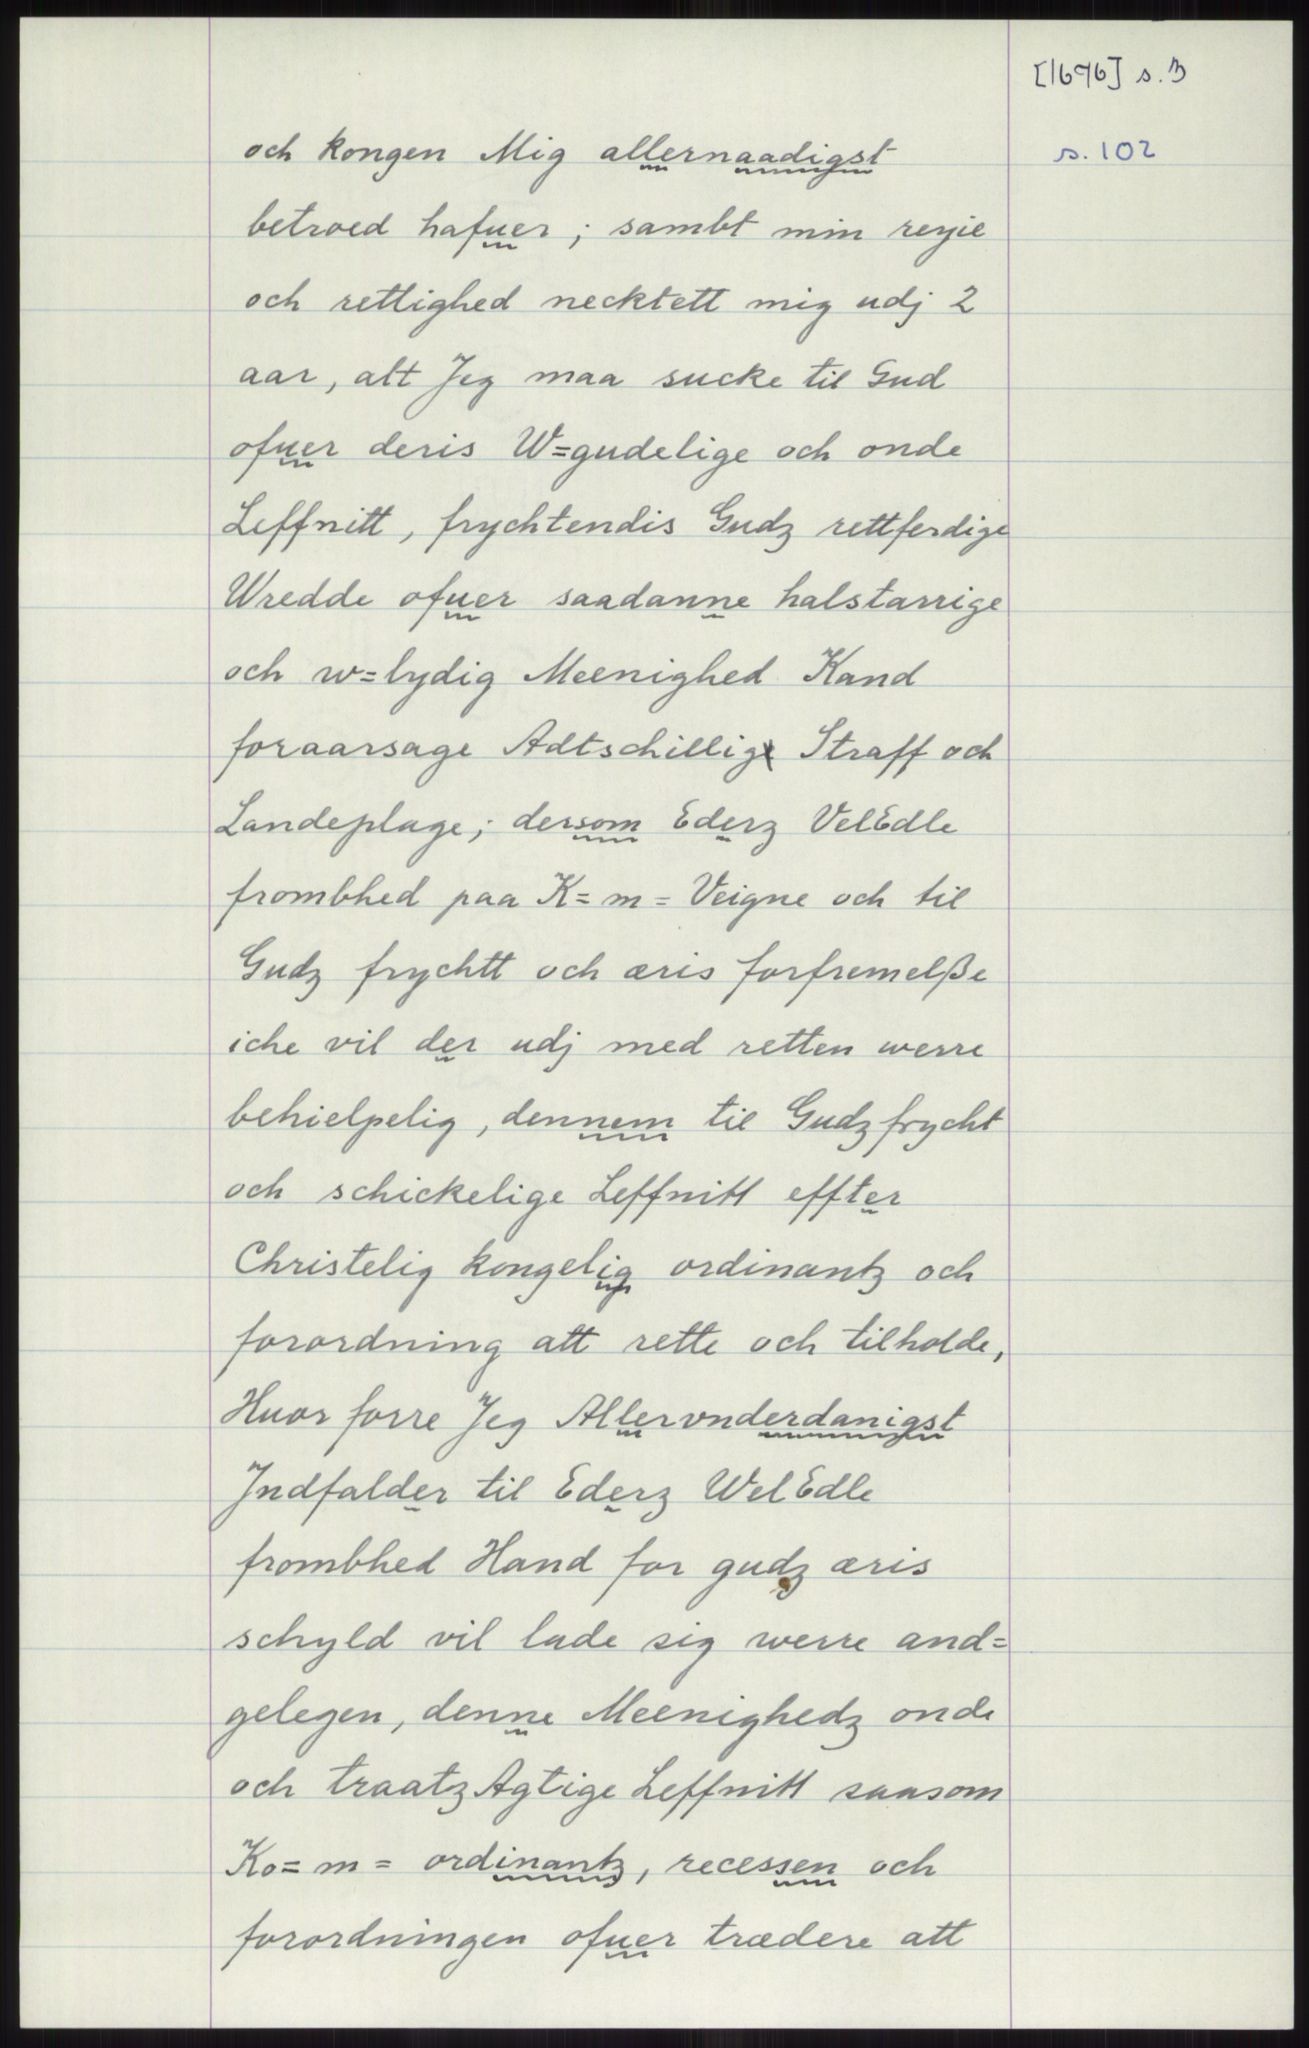 [1696] s. 3
s. 102
och kongen Mig allernaadigst
betroed hafuer ; sambt min renje
och rettighed necktett mig udj 2
aar, alt Jeg maa sucke til Gud
ofuer deris W=gudelige och onde
Leffnitt, frychtendis Gudz rettferdige
Wredde ofuer saadanne halstarrige
och w=lydig Meenighed Kand
foraarsage Adtschillig Straff och
Landeplage; dersom Ederz VelEdle
frombhed paa K=m= Veigne och til
Gudz frychtt och æris forfremelße
iche vil der udj med retten werre
behielpelig, dennem til Gudz frycht
och schickelige Leffnitt effter
Christelig kongelig ordinantz och
forordning att rette och tilholde,
Huor forre Jeg Allervnderdanigst
Jndfalder til Ederz WelEdle
frombhed Hand for gudz æris
schyld vil lade sig werre and=
gelegen, denne Meenighedz onde
och traatz Agtige Leffnitt saasom
Ko=m= ordinantz, recessen och
forordningen ofuer trædere att